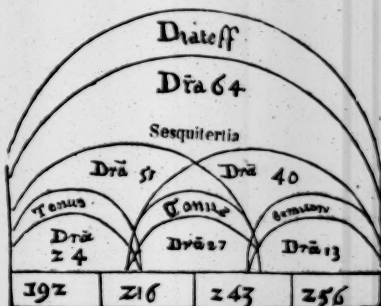 Diateſſ
Dr̄a 64
Sesquitertia
Drā 51 Drā 40
Tonus Tonus Semitoniū
Drā Drā 27 Drā 13
z4
19z z16 z43 z56